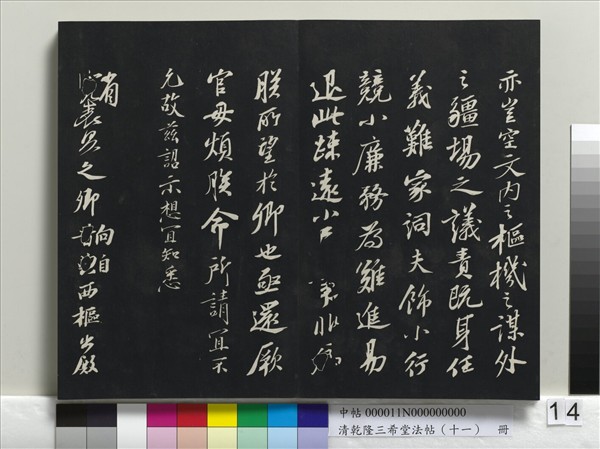 亦豈空文内之樞機之謀外
之疆場之議責既身任
義難家詞夫飾小行
競小廉務為難進易
退此疎遠小
朕所望於卿也亟還厥
官毋煩朕命所請宜不
允故茲詔示想宜知悉
省表具之卿向自西樞出殿
中帖 000011N000000000
清乾隆三希堂法帖（十一） 冊
14